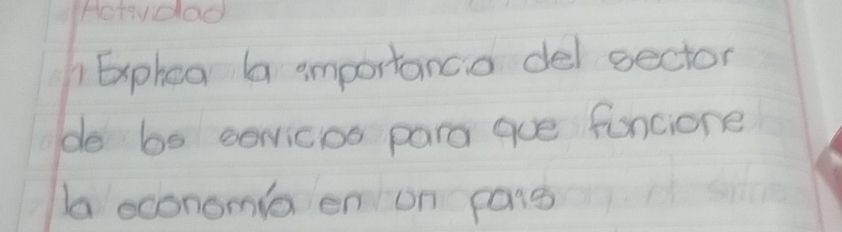 Actividad
1 Explica la importancia del sector
de los servicios para que funcione
la economía en un pais